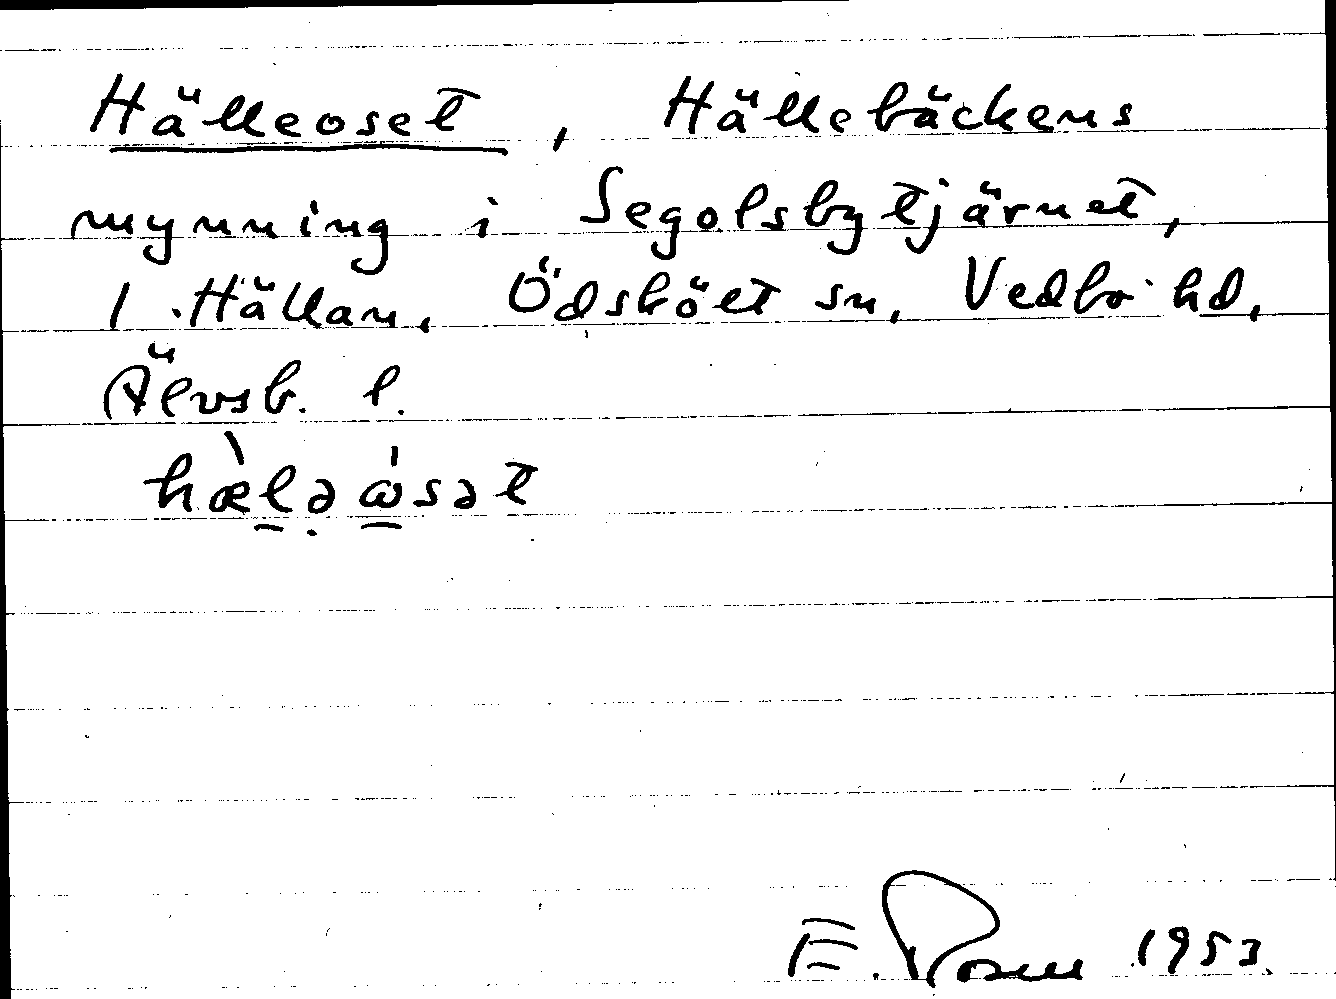 Hälleoset, Hällebäckens
mynning i Segolsbytjärnet,
1 Hällan, Ödsköet sn, Vedbo hd,
Älvsb. l.
hæ̀lə ω̍sət
E. Rosell 1953.